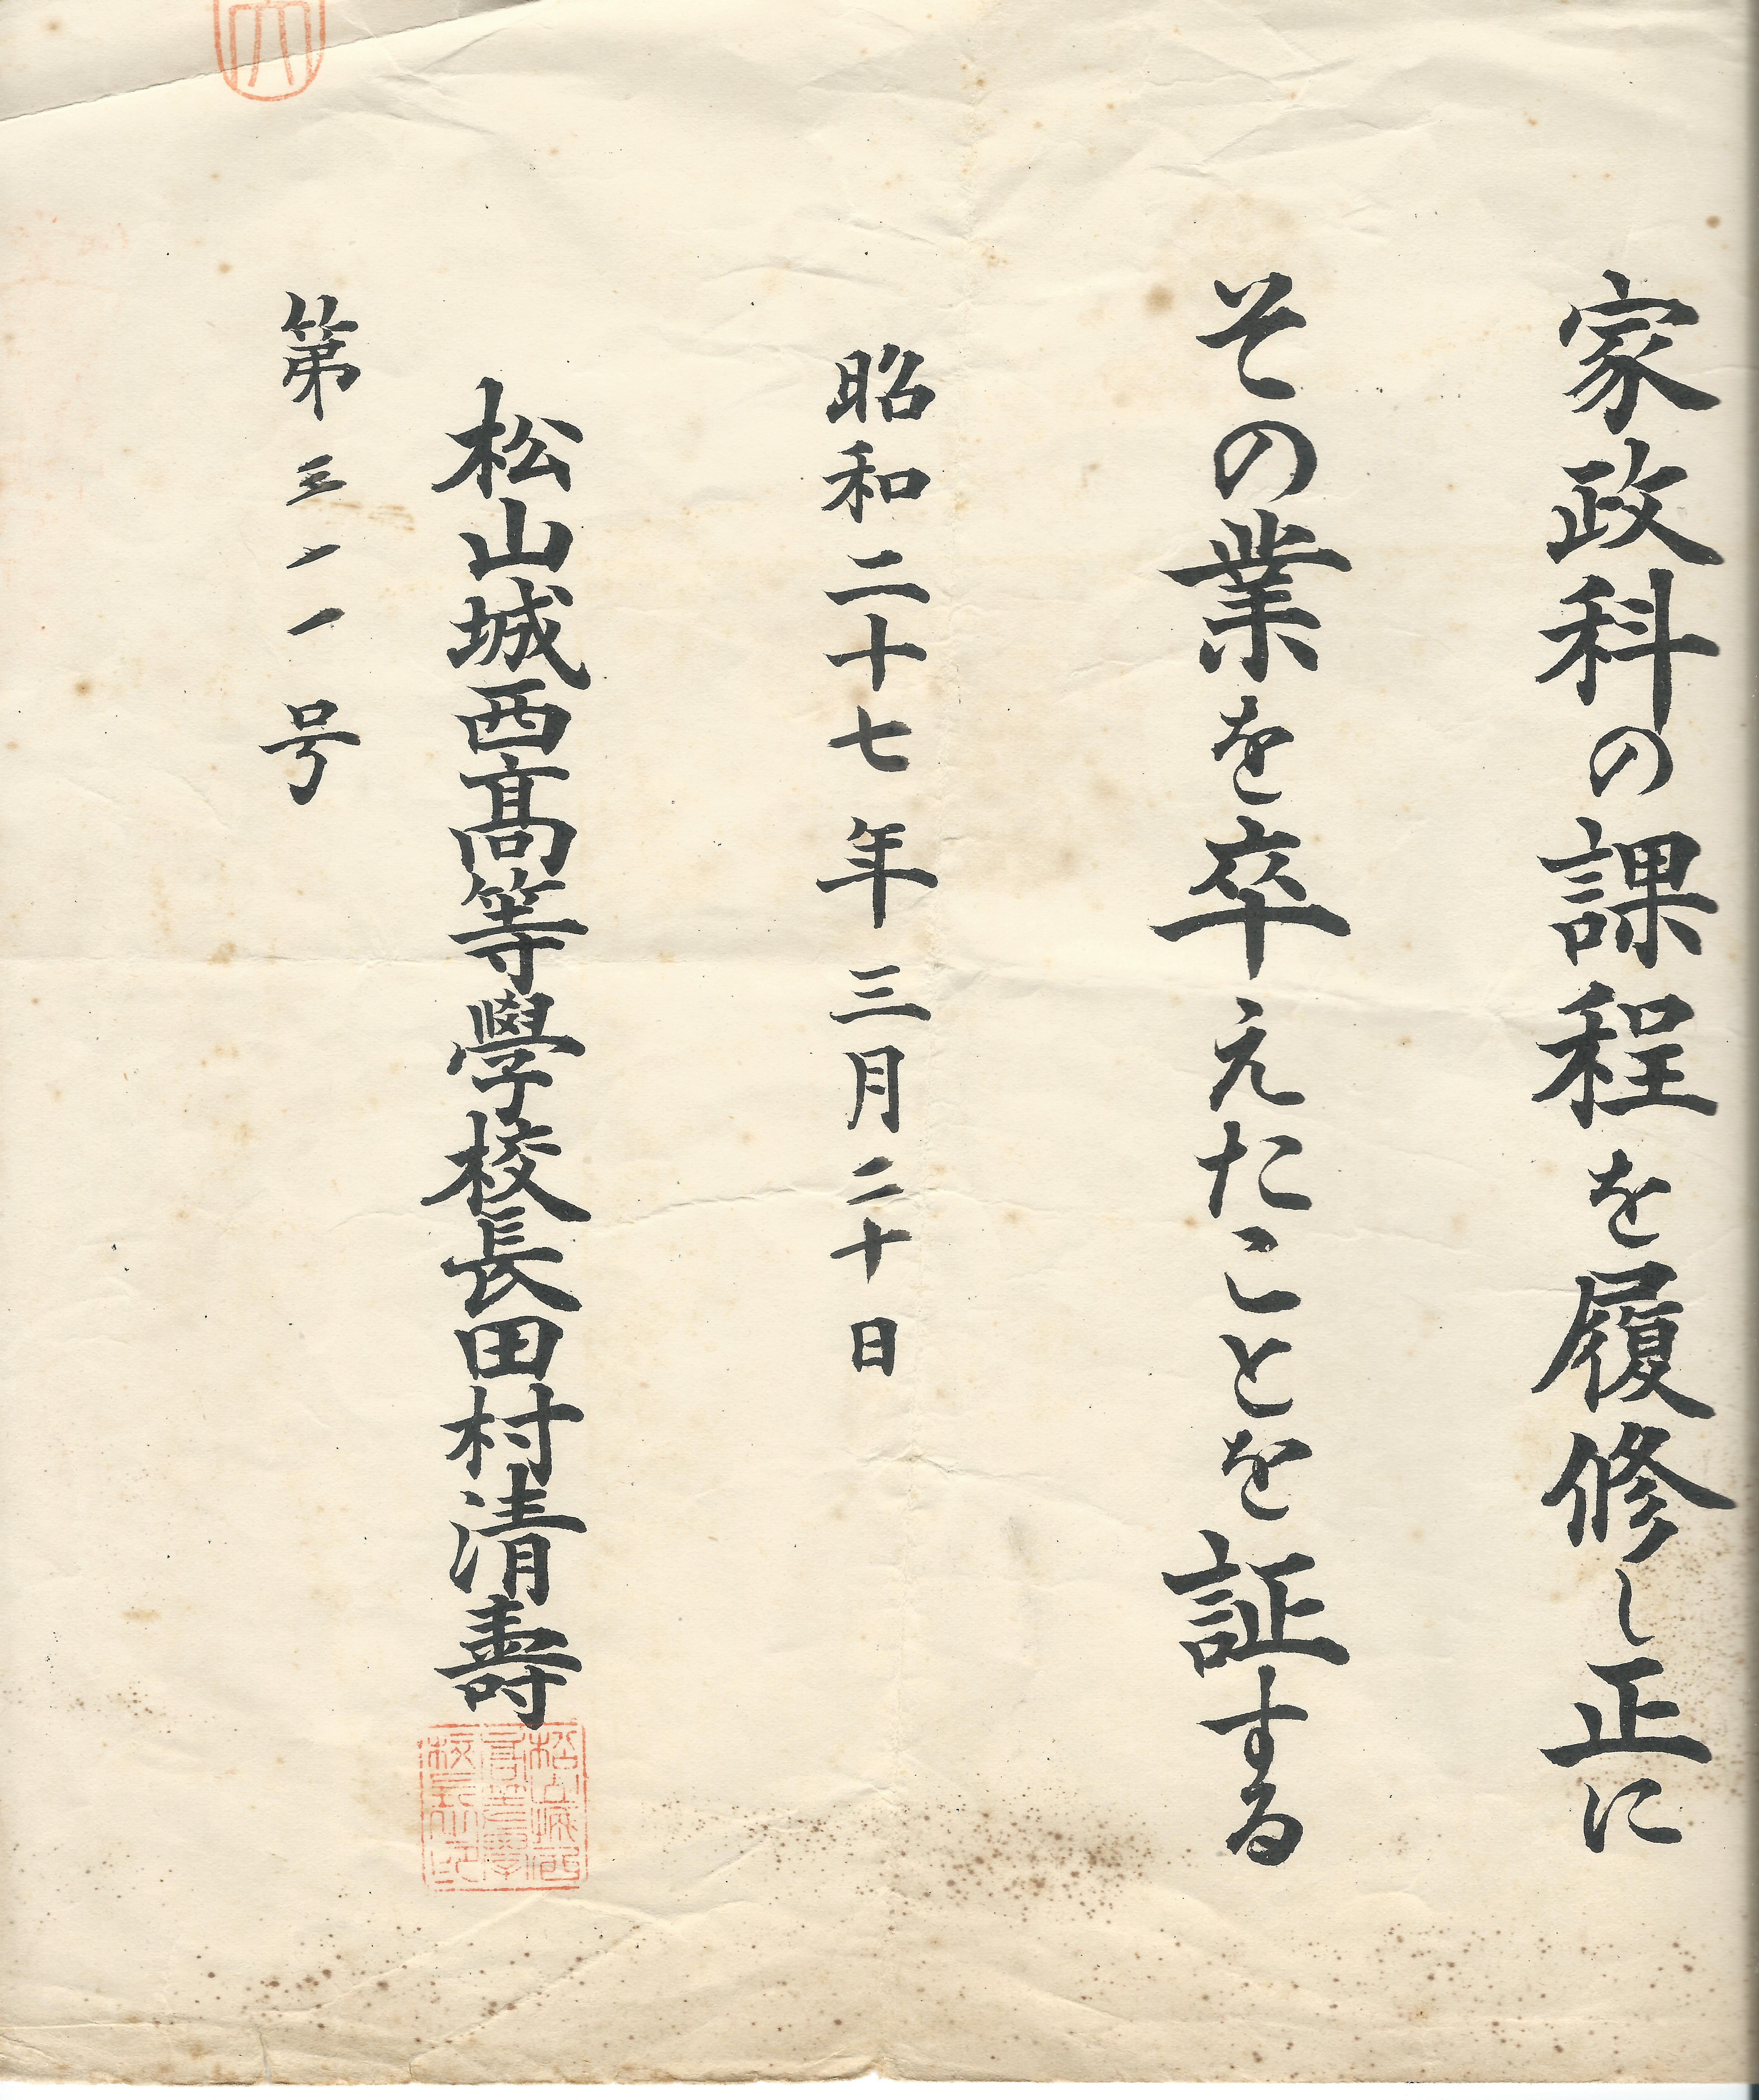 家政科の課程を履修し正に
その業を卒えたことを証する
昭和二十七年三月二十日
松山城西髙等學校長田村清壽
第三一一号